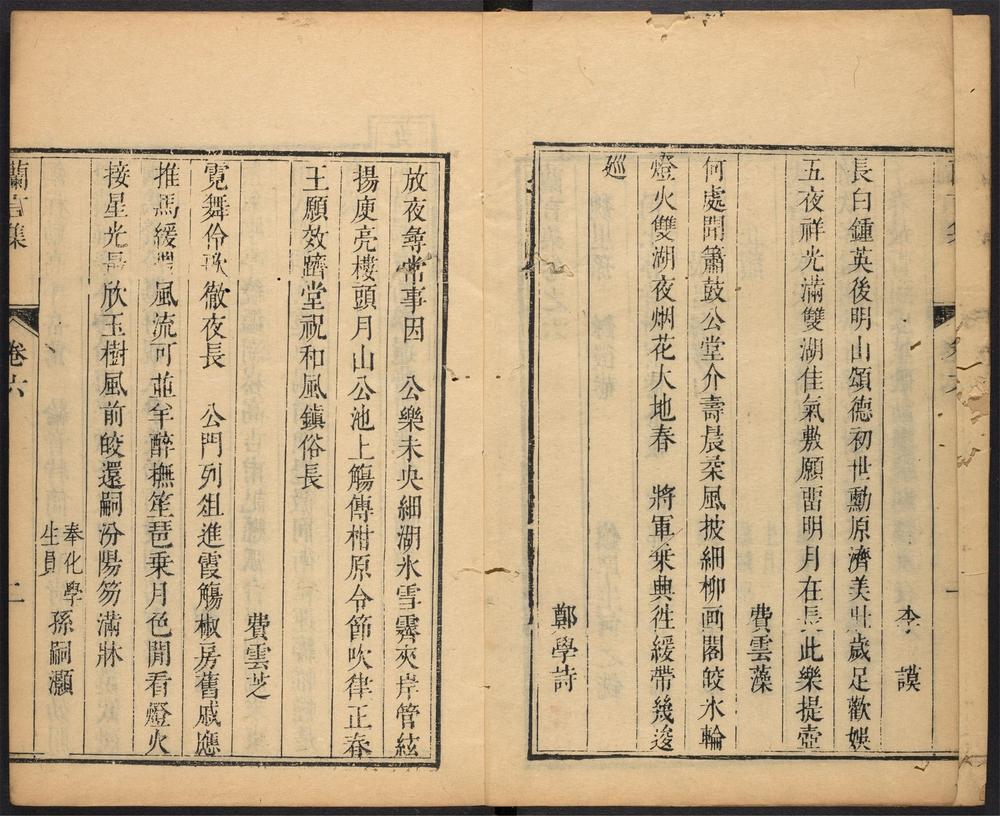 李 謨
長白鍾英後明山頌德初世勳原濟美壯歲足歡娛
五夜祥光滿雙湖佳氣敷願畱明月在長此樂提壺
費雲藻
何處聞簫鼓公堂介壽晨柔風披細柳画閣皎氷輪
燈火雙湖夜烟花大地春 將軍乘興徃緩帶幾逡
廵
鄭學詩
放夜尋常事因 公樂未央細湖氷雪霽夾岸管絃
揚庾亮樓頭月山公池上觴傳柑原令節吹律正春
王願效躋堂祝和風鎭俗長
費雲芝
霓舞伶歌徹夜長 公門列俎進霞觴椒房舊戚應
推馬緩帶風流可並羊醉撫笙琶乗月色閒看燈火
接星光最欣玉樹風前皎還嗣汾陽笏滿牀
奉化學生員 孫嗣灝
蘭言集 卷六 二